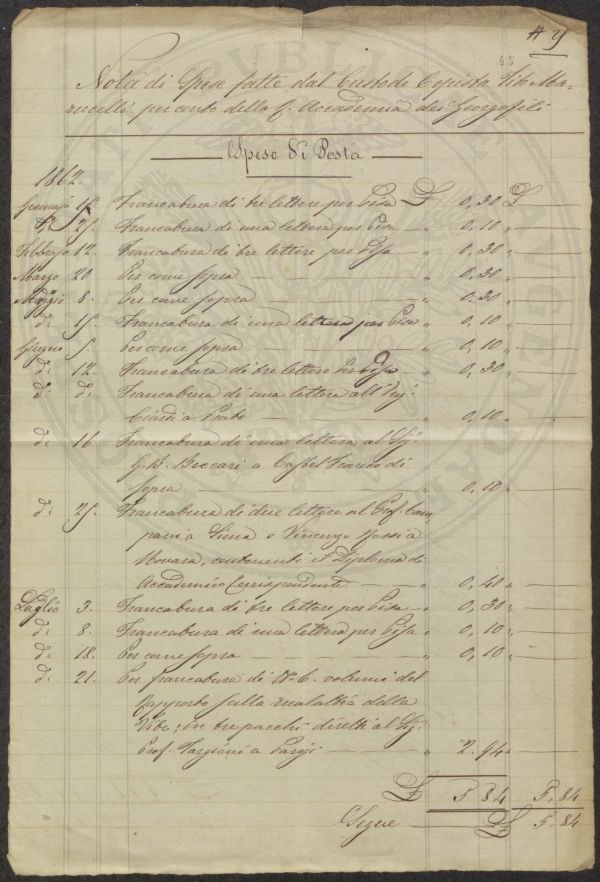 Nota di Spese fatte dal Custode Copista
per conto della R. Accademia dei Georgofili
Spese di Posta
1862.
Francatura di tre lettere per Pisa £ 0,30 £
25. Francatura di una lettera per Pisa " 0,10 "
Febbrajo 12. Francatura di tre lettere per Pisa " 0,30 "
Marzo 20 Per come sopra " 0,30 "
Maggio 8. Per come sopra " 0,30 "
di: 15. Francatura di una lettera per Pisa " 0,10 "
Giugno 5. Per come sopra " 0,10 "
di: 12. Francatura di tre lettere per Pisa " 0,30 "
di: di: Francatura di una lettera all' Sig:
a Prato " 0,10 "
di: 16 Francatura di una lettera al Sig:
G. B. Beccari a Castel Franco di
sopra " 0,10 "
di: 25. Francatura di due lettere al Prof. Cam=
pani a Siena e Vincenzo Rossi a
Novara, contenenti il Diploma di
Accademico Corrispondente " 0,40 "
Luglio 3. Francatura di tre lettere per Pisa " 0,30 "
di: 8. Francatura di una lettera per Pisa " 0,10 "
di: 18. Per come sopra " 0,10 "
di: 21. Per francatura di N.6. volumi del
Rapporto sulla malattia della
Vite; in tre pacchi diretti al Sig:
Prof. Targioni a Parigi " 2.94 "
£ 5 84 5,84
Segue £ 5,84